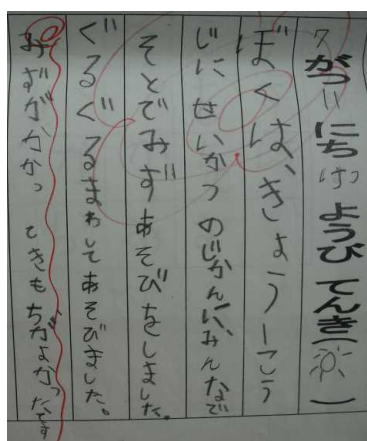 7がつ11にち げつようび てんき( )
ぼくは、きょう一こう
じに せいかつ のじかんに、みんなで
そとでみずあそびをしました。
ぐるぐるまわしてあそびました。
みずがかかっ ときもちがよかったです